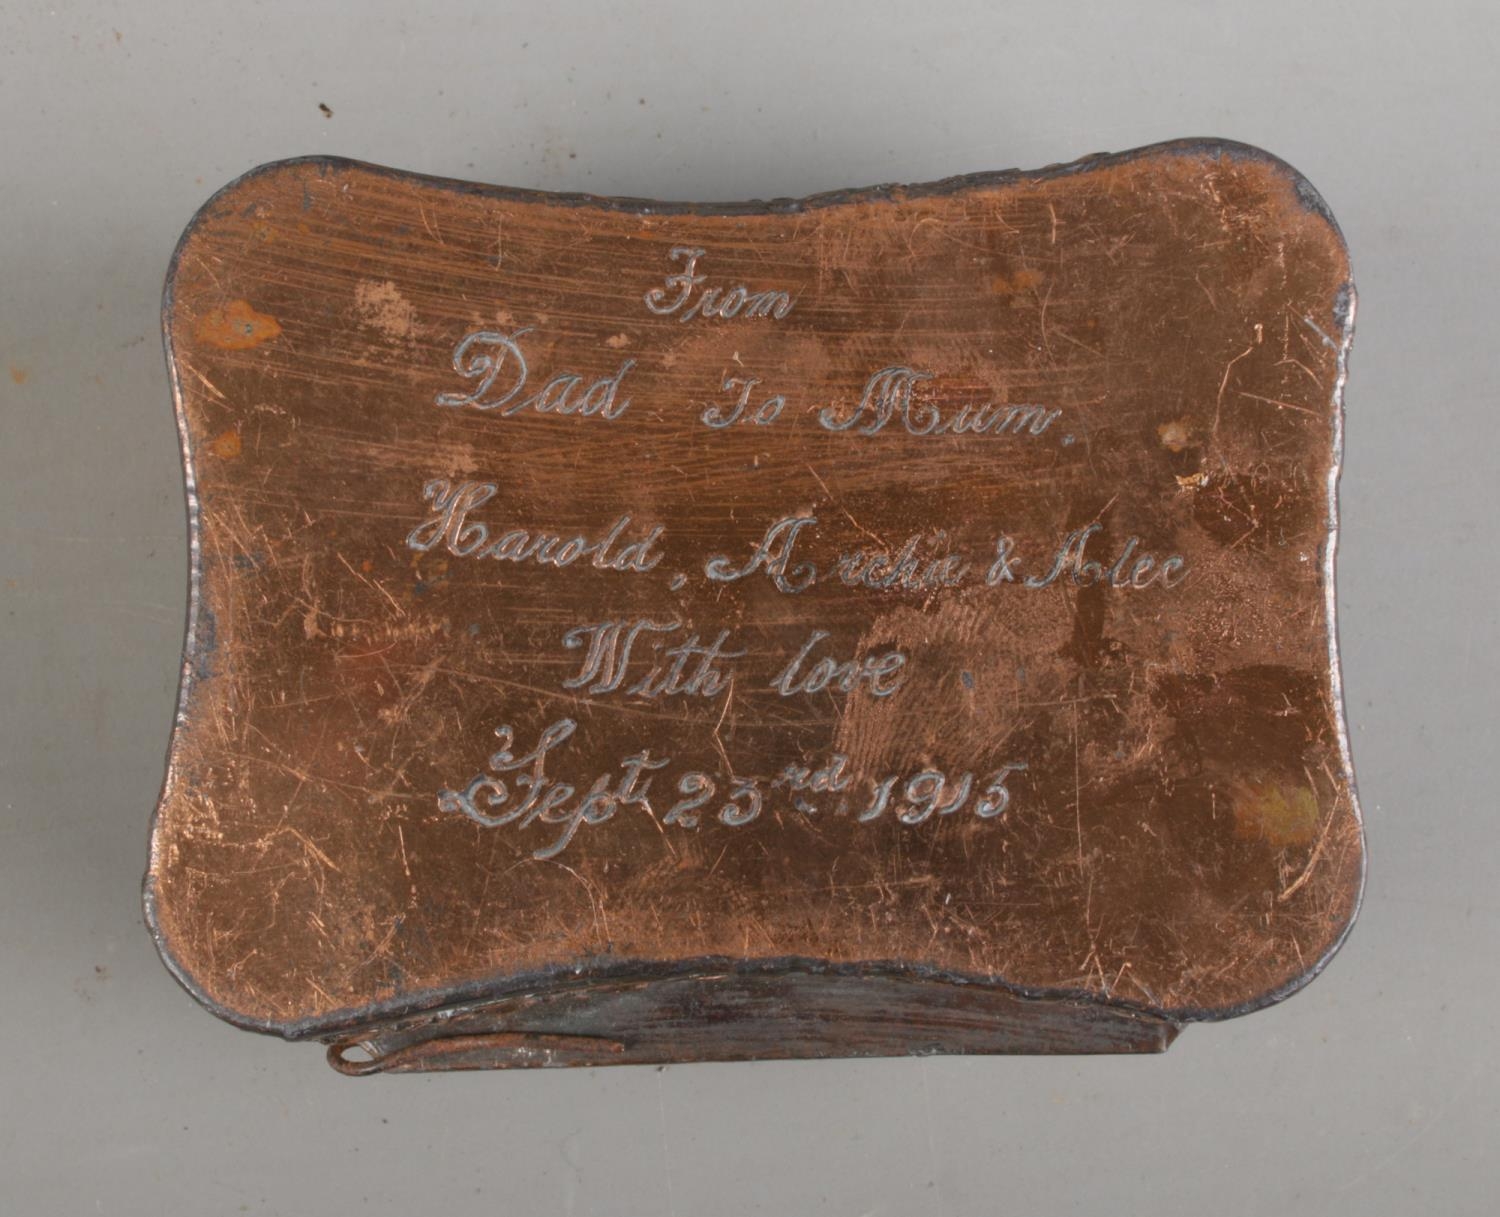 From
Dad To Mum.
Harold, Archie & Alec
With love
Sept 23rd 1915